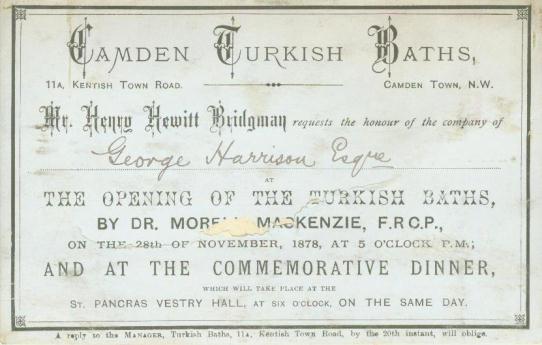 Camden Turkish Baths,
11A, Kentish Town Road. Camden Town, N.W.
Mr. Henry Hewitt Bridgman requests the honour of the company of
George Harrison Esqre
AT
THE OPENING OF THE TURKISH BATHS,
BY DR. MORELL MACKENZIE, F.R.C.P.,
ON THE 28th OF NOVEMBER, 1878, AT 5 O'CLOCK P.M.;
AND AT THE COMMEMORATIVE DINNER,
WHICH WILL TAKE PLACE AT THE
ST. PANCRAS VESTRY HALL, AT SIX O'CLOCK, ON THE SAME DAY.
A reply to the MANAGER, Turkish Baths, 11A, Kentish Town Road, by the 20th instant, will oblige.